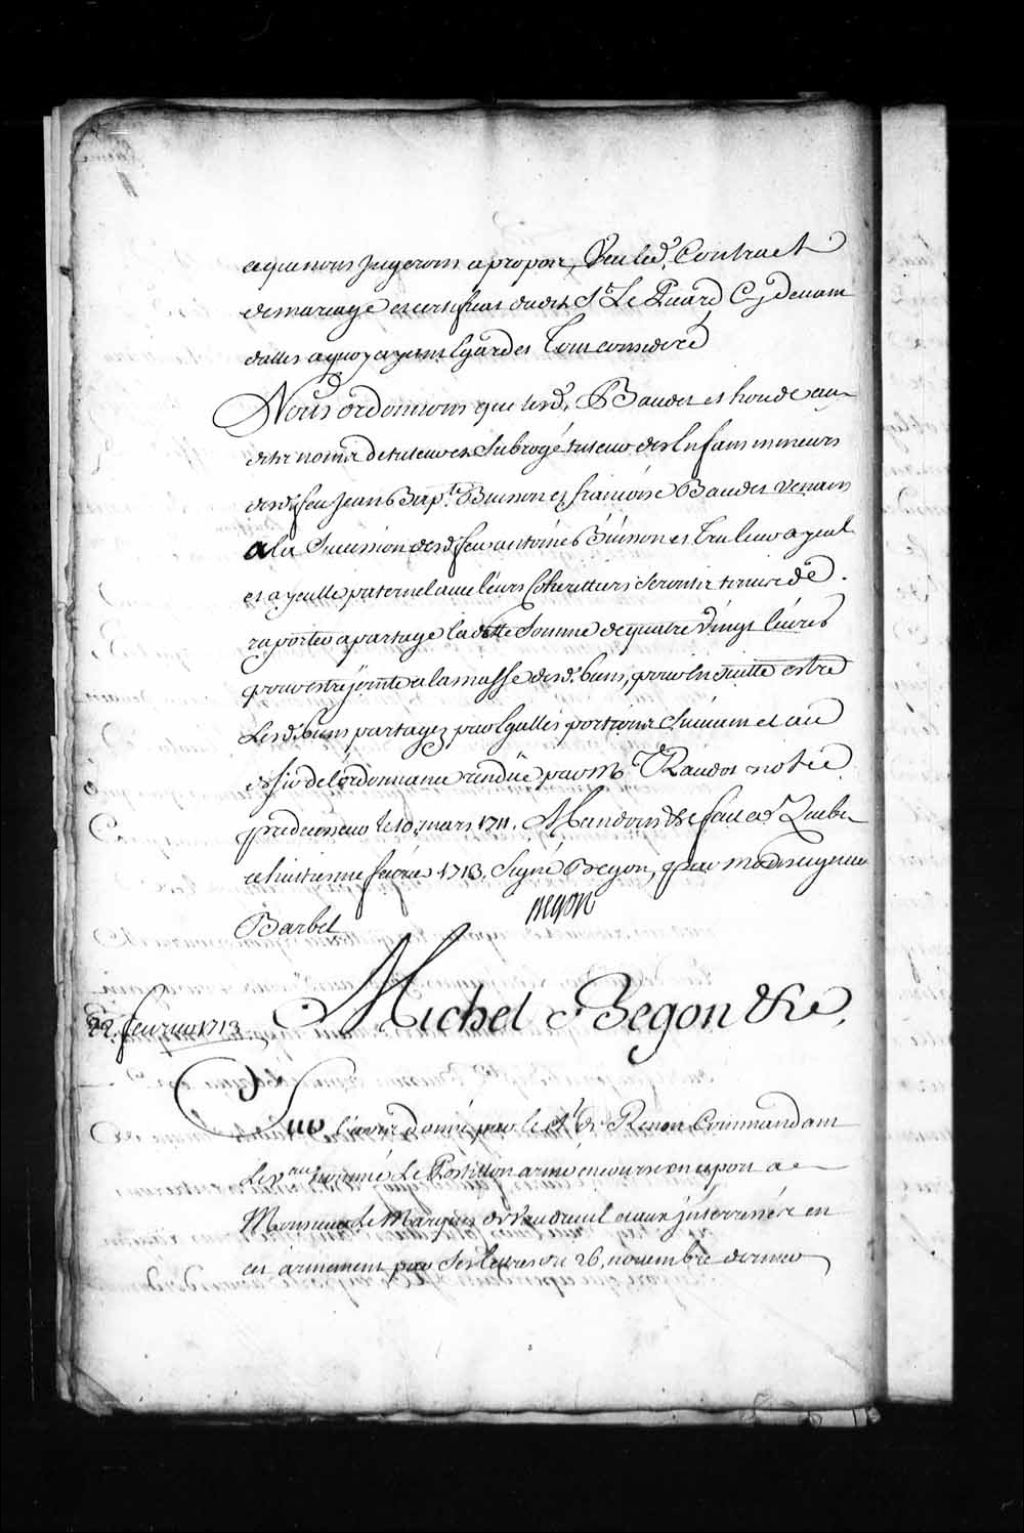 ce que nous Jugerons a propos, Veu led. Contract
de mariage et certificat dudit Sr. Le Picard Cy devant
dattés a quoy ayant Egard et Tout consideré
Nous ordonnons que lesd. Baudet et houde aux
dits noms de tuteur et Subrogé tuteur des Enfans mineurs
desd. feu Jean Bapte. Buisson et francoise Baudet venans
a la Sucession desd. feus antoine Buisson et leur ayeul
et ayeulle paternel avec leurs Coheritiers seront tenus de
raporter a partage ladtte Somme de quatre Vingt livres
pour estre jointe a la masse desd. biens, pour Ensuitte estre
Lesd. biens partagez par Egalles portions Suivant et au
desir de l'ordonnance rendüe par Mr. Raudot notre
predecesseur le 10. mars 1711. Mandons &c fait a Quebec
ce huitieme fevrier 1713. Signé Begon, Et par Monseigneur
Barbel
Begon
Michel Begon &c.
22. fevrier 1713
Sur l'avis donné par le Sr. de Commandant
Le vau. nommé Le Postillon armé en course en ce port a
Monsieur Le Marquis de Vaudreuil et aux jnteressés en
cet armement par Ses lettres du 26. novembre dernier